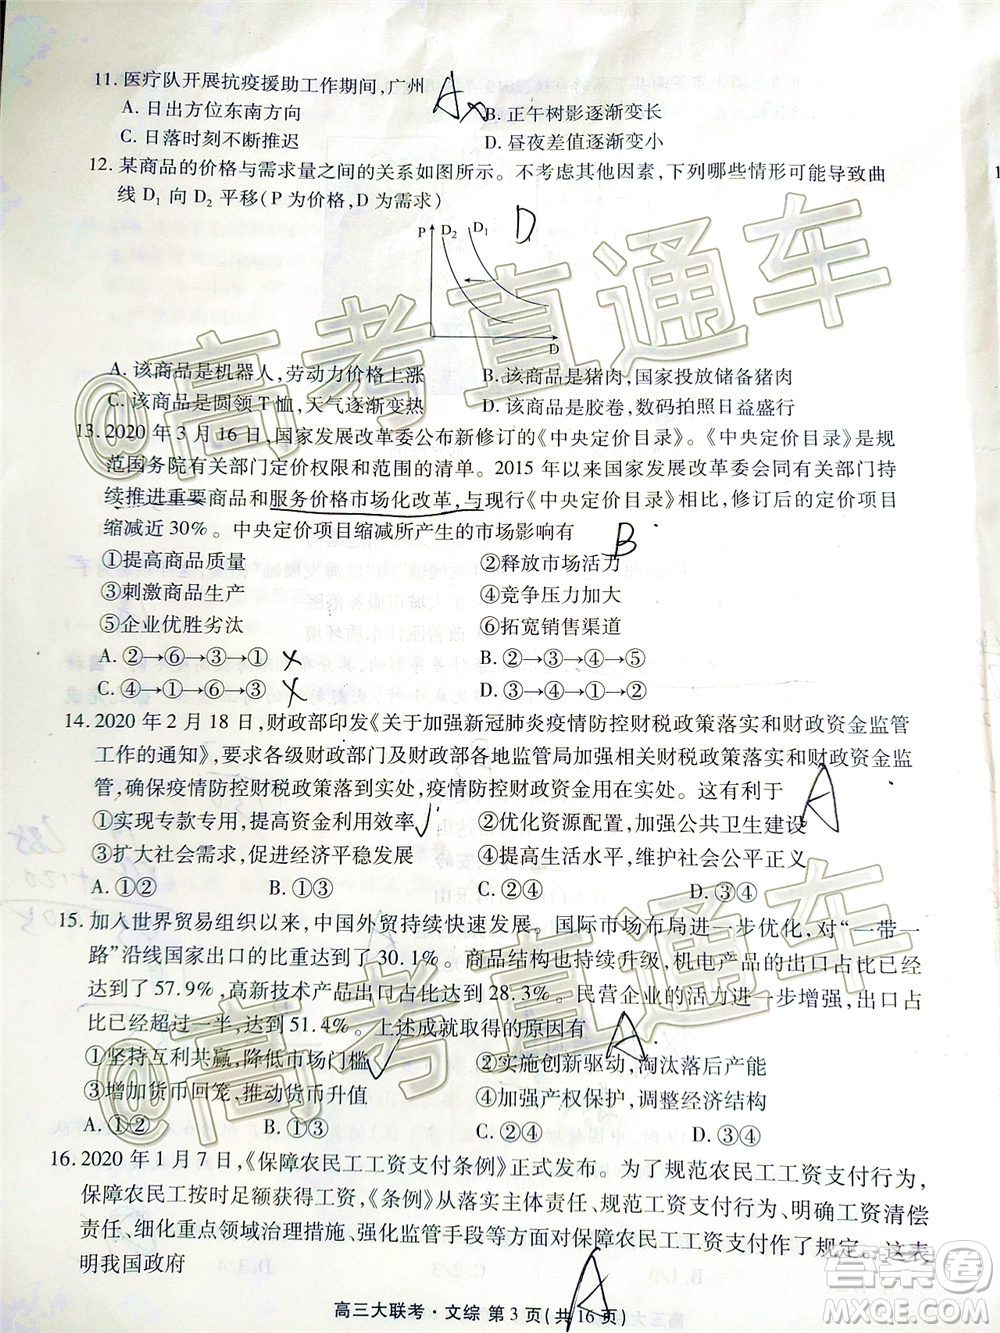 11. 医疗队开展抗疫援助工作期间,广州 A
A. 日出方位东南方向 B. 正午树影逐渐变长
C. 日落时刻不断推迟 D. 昼夜差值逐渐变小
12. 某商品的价格与需求量之间的关系如图所示。不考虑其他因素,下列哪些情形可能导致曲
线 D₁ 向 D₂ 平移(P 为价格,D 为需求) D
P D₂ D₁
D
A. 该商品是机器人,劳动力价格上涨 B. 该商品是猪肉,国家投放储备猪肉
C. 该商品是圆领 T 恤,天气逐渐变热 D. 该商品是胶卷,数码拍照日益盛行
13. 2020 年 3 月 16 日,国家发展改革委公布新修订的《中央定价目录》。《中央定价目录》是规
范国务院有关部门定价权限和范围的清单。2015 年以来国家发展改革委会同有关部门持
续推进重要商品和服务价格市场化改革,与现行《中央定价目录》相比,修订后的定价项目
缩减近 30%。中央定价项目缩减所产生的市场影响有 B
①提高商品质量 ②释放市场活力
③刺激商品生产 ④竞争压力加大
⑤企业优胜劣汰 ⑥拓宽销售渠道
A. ②→⑥→③→① × B. ②→③→④→⑤
C. ④→①→⑥→③ × D. ③→④→①→⑥
14. 2020 年 2 月 18 日,财政部印发《关于加强新冠肺炎疫情防控财税政策落实和财政资金监管
工作的通知》,要求各级财政部门及财政部各地监管局加强相关财税政策落实和财政资金监
管,确保疫情防控财税政策落到实处,疫情防控财政资金用在实处。这有利于 A
①实现专款专用,提高资金利用效率 √ ②优化资源配置,加强公共卫生建设
③扩大社会需求,促进经济平稳发展 ④提高生活水平,维护社会公平正义
A. ①② B. ①③ C. ②④ D. ③④
15. 加入世界贸易组织以来,中国外贸持续快速发展。国际市场布局进一步优化,对“一带一
路”沿线国家出口的比重达到了 30.1%。商品结构也持续升级,机电产品的出口占比已经
达到了 57.9%,高新技术产品出口占比达到 28.3%。民营企业的活力进一步增强,出口占
比已经超过一半,达到 51.4%。上述成就取得的原因有 A
①坚持互利共赢,降低市场门槛 √ ②实施创新驱动,淘汰落后产能
③增加货币回笼,推动货币升值 ④加强产权保护,调整经济结构
A. ①② B. ①③ C. ②④ D. ③④
16. 2020 年 1 月 7 日,《保障农民工工资支付条例》正式发布。为了规范农民工工资支付行为,
保障农民工按时足额获得工资,《条例》从落实主体责任、规范工资支付行为、明确工资清偿
责任、细化重点领域治理措施、强化监管手段等方面对保障农民工工资支付作了规定。这表
明我国政府 A
高三大联考·文综 第 3 页(共 16 页)
@高考直通车
@高考直通车
答案圈
MXQE.COM